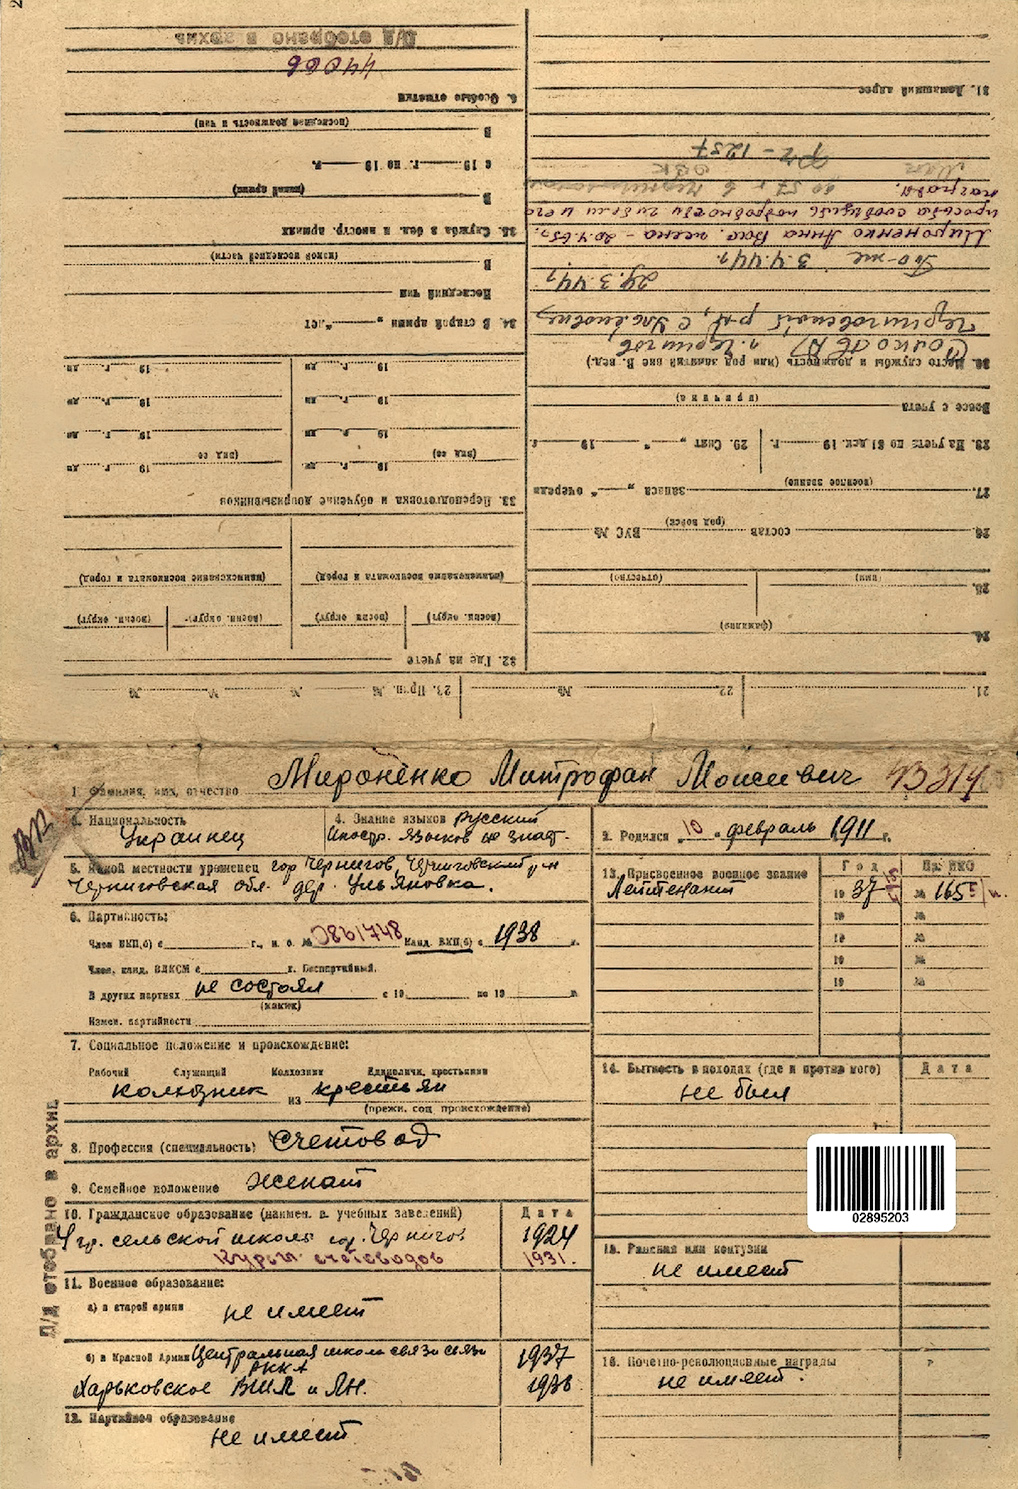 Д/Д отобрано в архив
44066
6. Особые отметки
В
(последняя должность и чин)
с 19 г. по 19 г.
В
(какой армии)
35. Служба в бел. и иностр. армиях
В
(какой последней части)
Последний чин
34. В старой армии „ “ лет
19 г. дн 19 г. дн
19 г. дн 19 г. дн
19 г. дн 19 г. дн
(вид се) (вид се)
19 г. дн 19 г. дн
33. Переподготовка и обучение допризывников
(наименование военкомата и город) (наименование военкомата и город)
(воен. округ) (воен. округ) (воен. округ) (воен. округ)
32. Где на учете
31. Домашний адрес
ФП - 1257
награды.
просьба сообщить подробности гибели и его
Мироненко Анна Вас. жена - 20.4.65г.
То-же 3.4.44г.
29.3.44г.
Черниговской р-н, с Ульяновке,
г. Чернигов
30. Место службы и должность (или род занятий вне В. вед.)
Вовсе с учета
(причина)
28. На учете по 31 дек. 19 г. 29. Снят „ “ 19 г.
27. запаса „ “ очереди
(военное звание)
26. состав ВУС №
(род войск)
25.
(имя) (отчество)
24.
(фамилия)
21. 22. № 23. Прип. № № №
1 Фамилия, имя, отчество Мироненко Митрофан Моисеевич
3. Национальность Украинец
4. Знание языков русский
Иностр. языков не знает.
2. Родился „10“ февраль 1911 г.
5. Какой местности уроженец гор Чернигов, Черниговский р-н
Черниговская обл. дер. Ульяновка.
6. Партийность:
Член ВКП(б) с г., п. б. № 0861748 Канд. ВКП(б) с 1938 г.
Член, канд. ВЛКСМ с г. Беспартийный.
В других партиях не состоял с 19 по 19 г.
(каких)
Измен. партийности
7. Социальное положение и происхождение:
Рабочий Служащий Колхозник Единоличн. крестьянин
колхозник из крестьян
(прежн. соц происхождение)
8. Профессия (специальность) Счетовод
9. Семейное положение Женат
10. Гражданское образование (наимен. в. учебных заведений) Дата
4 гр. сельской школы гор. Чернигов 1924
Курсы счетоводов 1931.
11. Военное образование:
а) в старой армии не имеет
б) в Красной Армии Центральная школа связи связи 1937
РККА
Харьковское ВШЛ и ЛН. 1938
12. Партийное образование
не имеет
13. Присвоенное военное звание Год Пр. НКО
Лейтенант 1937 № 165
19 №
19 №
19 №
19 №
14. Бытность в походах (где и против кого) Дата
не был
02895203
15. Ранения или контузии
не имеет
16. Почетно-революционные награды
не имеет.
Д/Д отобрано в архив